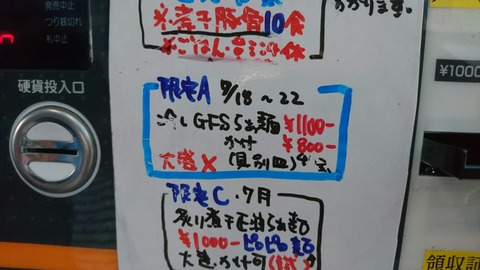 かかります。
発売中止
つり銭切れ
札中止
※煮干豚骨10食
※ごはん
硬貨投入口
¥1000
限定A 9/18〜22
冷しGFSらぁ麺 ¥1100-
かけ ¥800-
大盛× (具別皿)
限定C・7月
炙り煮干正油らぁ麺
¥1000-ピロピロ麺
大盛・かけ可
領収証